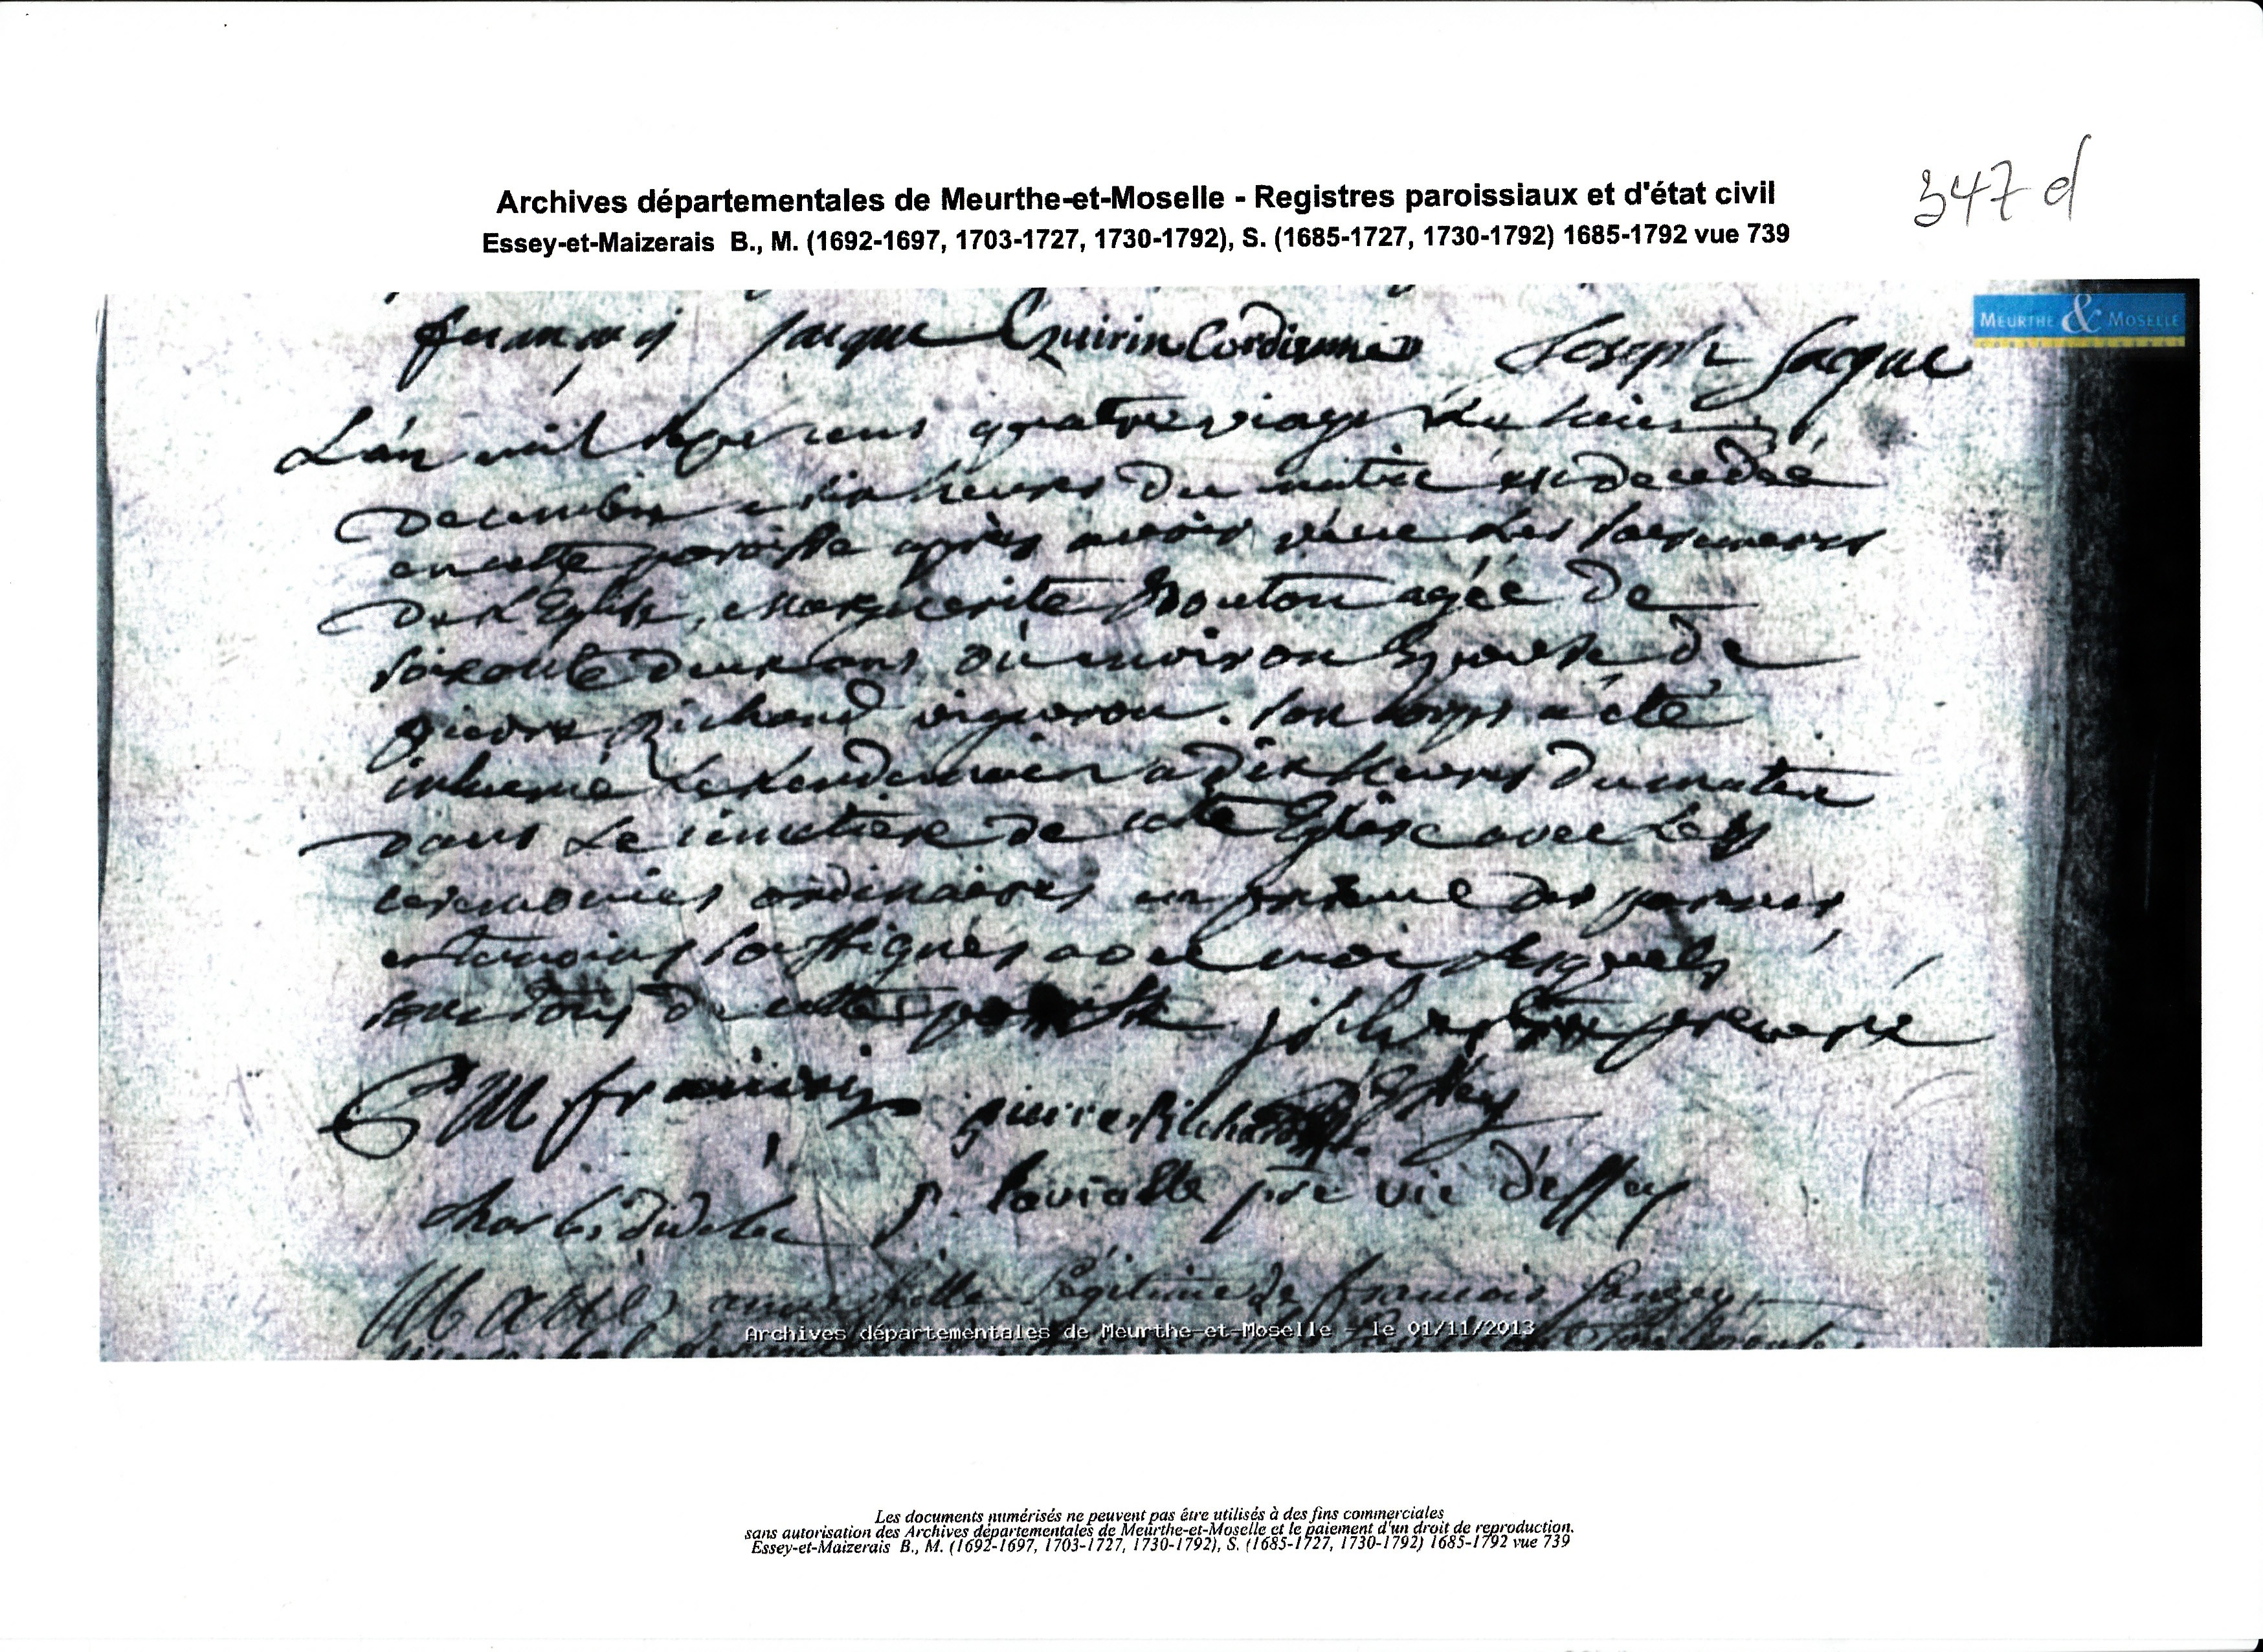 347 d
Archives départementales de Meurthe-et-Moselle - Registres paroissiaux et d'état civil
Essey-et-Maizerais B., M. (1692-1697, 1703-1727, 1730-1792), S. (1685-1727, 1730-1792) 1685-1792 vue 739
MEURTHE & MOSELLE
françois jacque Quirin Cordionnier Joseph Jacque
L'an mil sept cens quatre vingt
decembre a dix heures du matin est decedée
en cette paroisse après avoir les sacremens
de l'Eglise, Marguerite Mouton agée de
soixante deux ans ou environ de
pierre Richard vigneron. son corps a été
inhumé le lendemain a dix heures du matin
dans le cimetiere de cette Eglise avec les
ceremonies ordinaires en presence des parens,
et temoins soussignés avec moi lesquels
sont tous de cette paroisse
C M françois pierre Richard Essey
charles p. laviolle ptre vic d'essey
fille légitime de françois
Archives départementales de Meurthe-et-Moselle - le 01/11/2013
Les documents numérisés ne peuvent pas être utilisés à des fins commerciales
sans autorisation des Archives départementales de Meurthe-et-Moselle et le paiement d'un droit de reproduction.
Essey-et-Maizerais B., M. (1692-1697, 1703-1727, 1730-1792), S. (1685-1727, 1730-1792) 1685-1792 vue 739